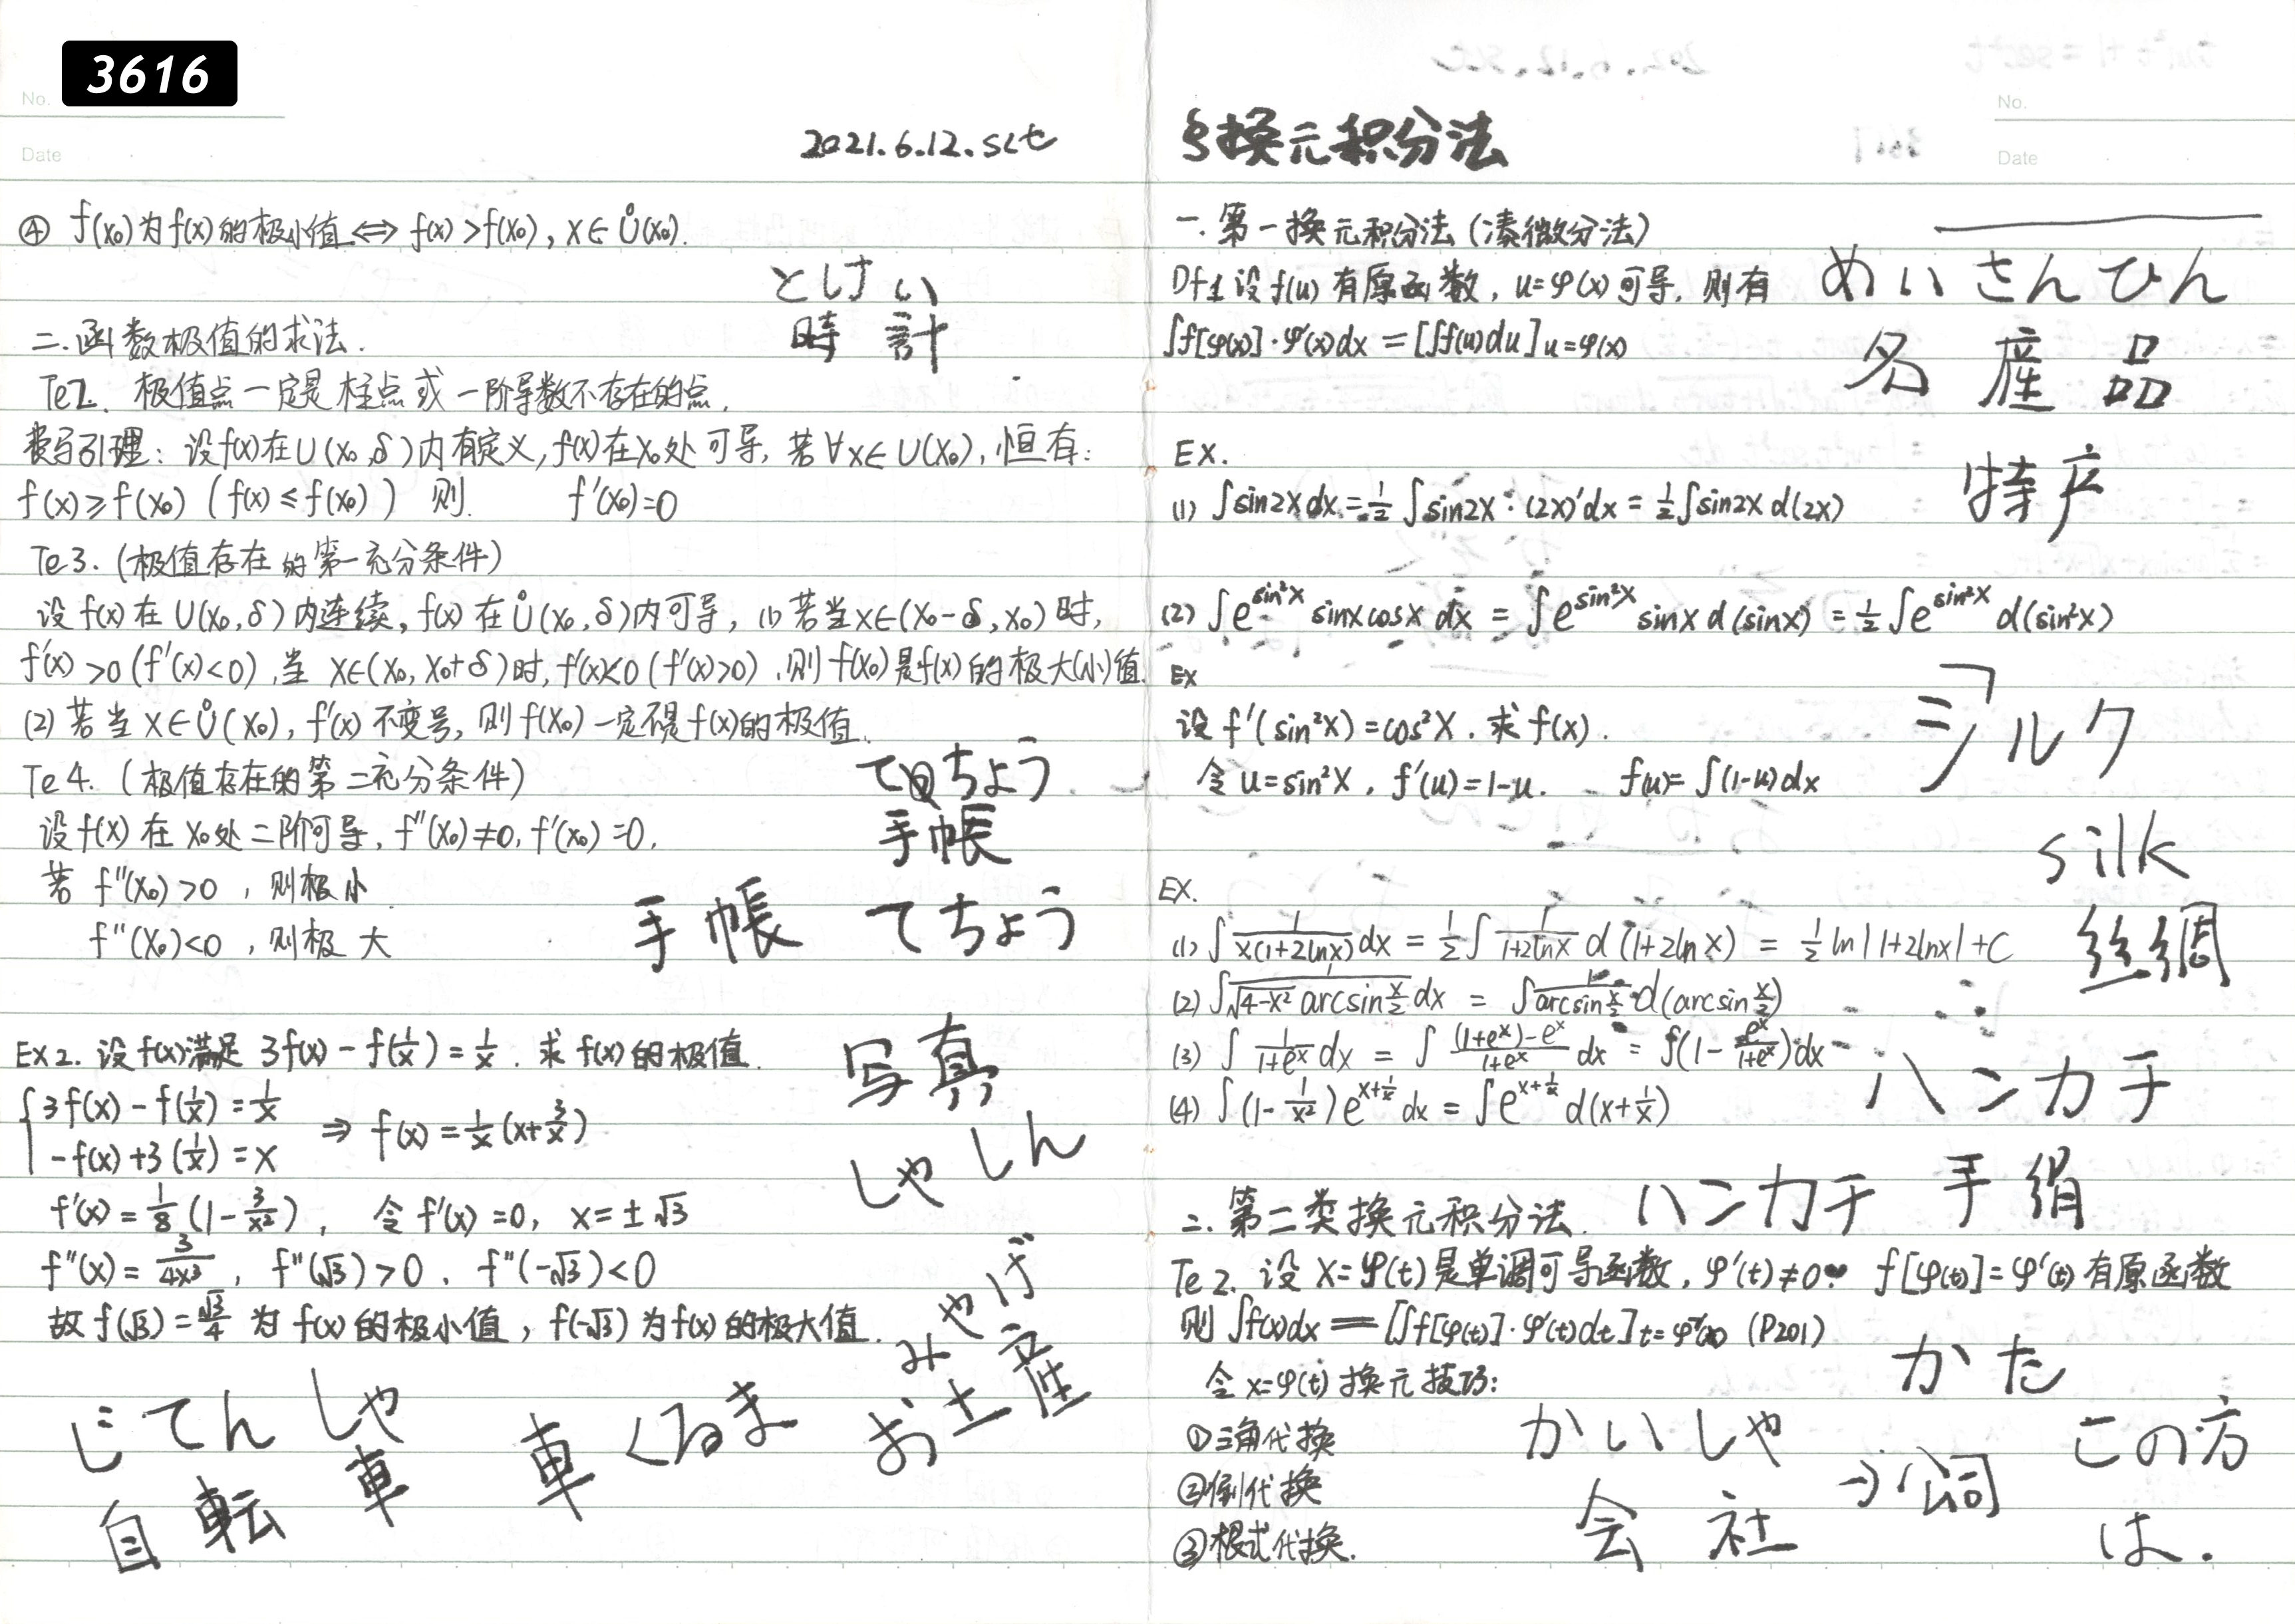 3616
No.
Date
2021.6.12.sat
④ f(x₀)为f(x)的极小值⇔f(x)>f(x₀), x∈Ů(x₀).
とけい
時計
二.函数极值的求法.
Te2. 极值点一定是柱点或一阶导数不存在的点.
费马引理: 设f(x)在U(x₀,δ)内有定义, f(x)在x₀处可导, 若∀x∈U(x₀), 恒有:
f(x)≥f(x₀) (f(x)≤f(x₀)) 则. f'(x₀)=0
Te3. (极值存在的第一充分条件)
设f(x)在U(x₀,δ)内连续, f(x)在Ů(x₀,δ)内可导, (1) 若当x∈(x₀-δ,x₀)时,
f'(x)>0(f'(x)<0), 当x∈(x₀,x₀+δ)时, f'(x)<0(f'(x)>0), 则f(x₀)是f(x)的极大(小)值.
(2) 若当x∈Ů(x₀), f'(x)不变号, 则f(x₀)一定不是f(x)的极值.
Te4. (极值存在的第二充分条件)
てちょう
手帳
设f(x)在x₀处二阶可导, f''(x₀)≠0, f'(x₀)=0.
若 f''(x₀)>0, 则极小.
f''(x₀)<0, 则极大
手帳 てちょう
EX2. 设f(x)满足 3f(x)-f(1/x)=1/x. 求f(x)的极值.
写真
しゃしん
{3f(x)-f(1/x)=1/x
-f(x)+3(1/x)=x ⇒ f(x)=1/x(x+3/x)
f'(x)=1/8(1-3/x²), 令f'(x)=0, x=±√3
f''(x)=3/4x³, f''(√3)>0. f''(-√3)<0
故f(√3)=√3/4 为f(x)的极小值, f(-√3)为f(x)的极大值.
みやげ
お土産
じてんしゃ
自転車
車 くるま
No.
Date
§换元积分法
一.第一换元积分法(凑微分法)
Df1 设f(u)有原函数, u=φ(x)可导, 则有
∫f[φ(x)]·φ'(x)dx=[∫f(u)du]u=φ(x)
めいさんひん
名産品
特产
EX.
(1) ∫sin2xdx=1/2∫sin2x·(2x)'dx=1/2∫sin2xd(2x)
(2) ∫e^sin²x sinxcosx dx = ∫e^sin²x sinx d(sinx) = 1/2∫e^sin²x d(sin²x)
EX
设f'(sin²x)=cos²x. 求f(x).
令u=sin²x, f'(u)=1-u. f(u)=∫(1-u)dx
シルク
silk
丝绸
EX.
(1) ∫1/x(1+2lnx)dx = 1/2∫1/1+2lnx d(1+2lnx) = 1/2 ln|1+2lnx|+C
(2) ∫1/√4-x² arcsin x/2 dx = ∫1/arcsin x/2 d(arcsin x/2)
(3) ∫1/1+eˣ dx = ∫(1+eˣ)-eˣ/1+eˣ dx = ∫(1-eˣ/1+eˣ)dx
(4) ∫(1-1/x²)e^x+1/x dx = ∫e^x+1/x d(x+1/x)
ハンカチ
ハンカチ 手绢
二.第二类换元积分法.
Te2. 设x=φ(t)是单调可导函数, φ'(t)≠0. f[φ(t)]=φ'(t)有原函数
则∫f(x)dx=[∫f[φ(t)]·φ'(t)dt]t=φ⁻¹(x) (P201)
令x=φ(t)换元技巧:
①三角代换
②倒代换
③根式代换.
かいしゃ
会社
→公司
かた
この方
は.